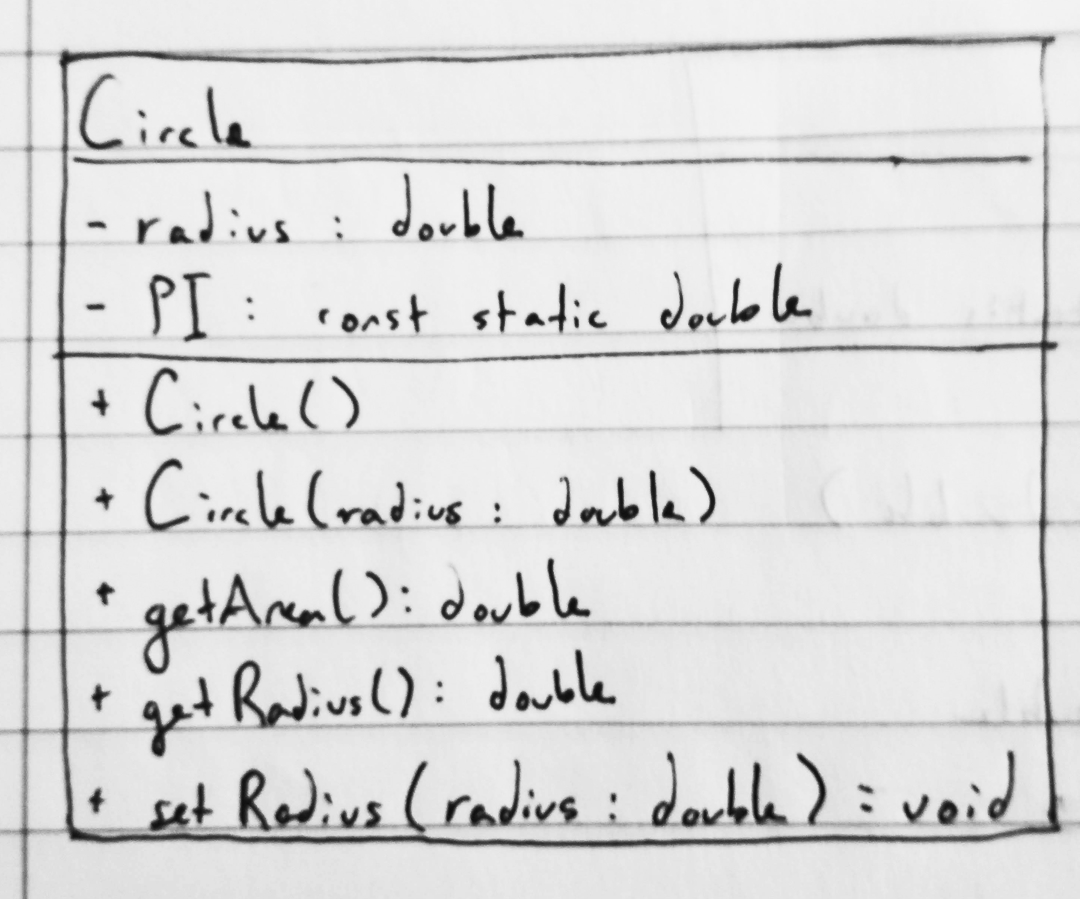 Circle
- radius : double
- PI : const static double
+ Circle()
+ Circle(radius : double)
+ getArea(): double
+ getRadius(): double
+ setRadius(radius : double) : void